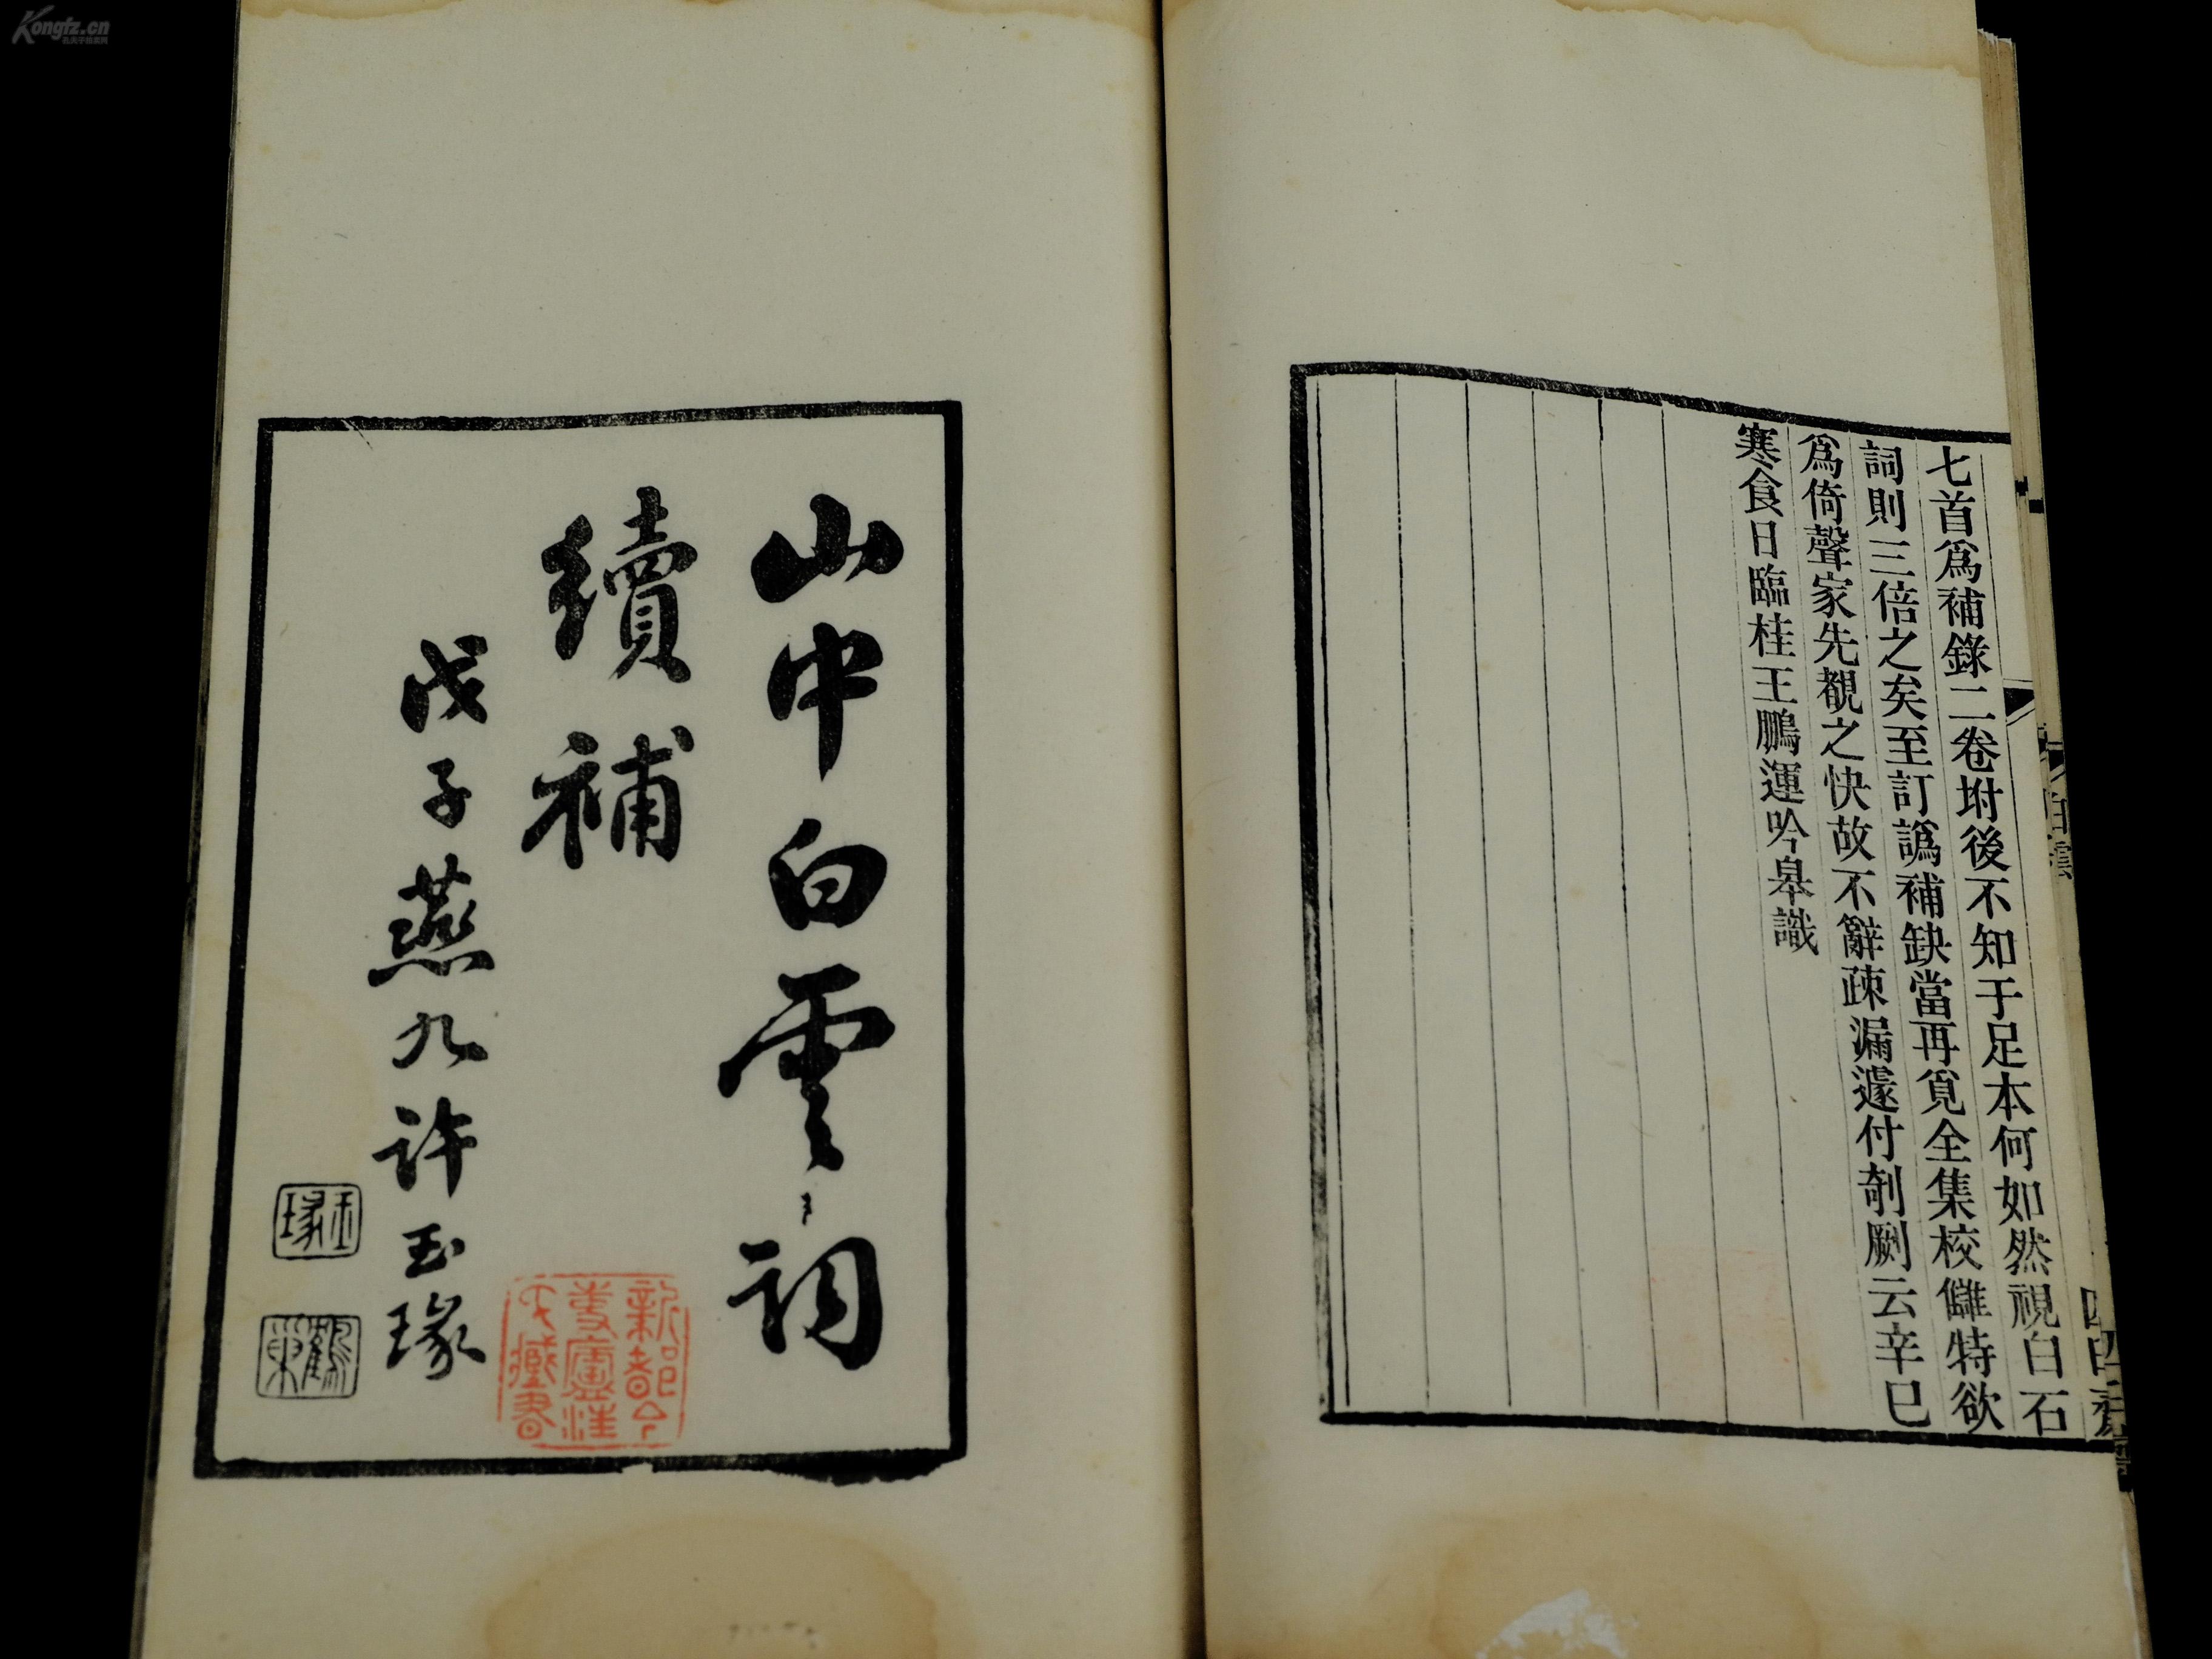 七首爲補錄二卷坿後不知于足本何如然視白石
詞則三倍之矣至訂譌補缺當再覓全集校讎特欲
爲倚聲家先覩之快故不辭疎漏遽付剞劂云辛巳
寒食日臨桂王鵬運吟皋識
白雲
山中白雲詞
續補
戊子燕九許玉瑑
玉瑑
鶴巢
Kongfz.cn